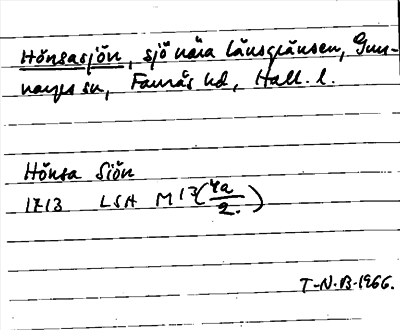 Hönsasjön, sjö nära länsgränsen, Gun-
narps sn, Faurås hd, Hall. l.
Hönsa Siön
1713 LSA M13(4a/2.)
T-N.B-1966.